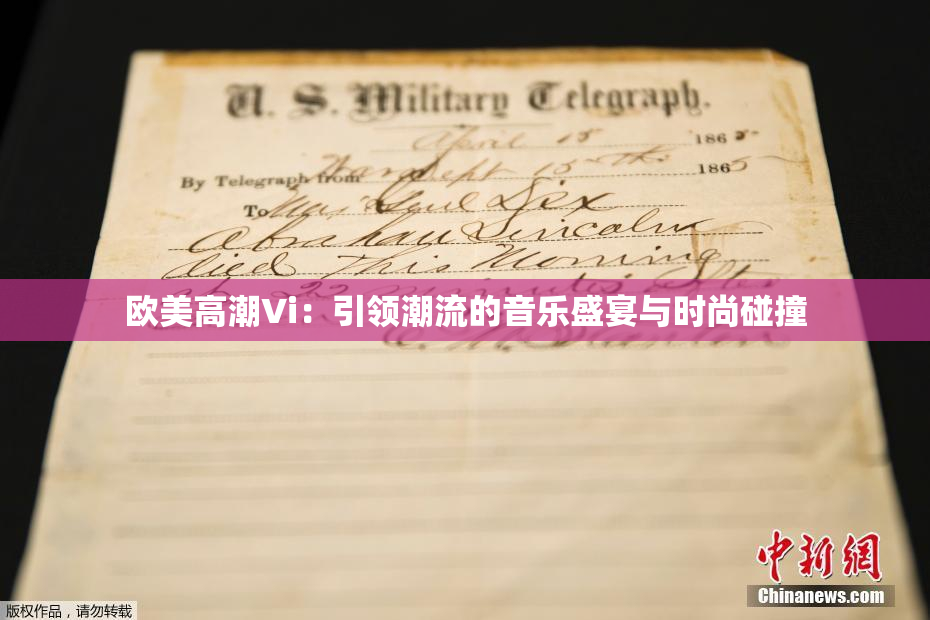 U. S. Military Telegraph.
April 15 1865
By Telegraph from War Dept 15th 1865
To Maj Genl Dix
Abraham Lincoln
died This Morning
at 22 minutes after
欧美高潮Vi：引领潮流的音乐盛宴与时尚碰撞
E. M. Stanton
中新网
Chinanews.com
版权作品，请勿转载